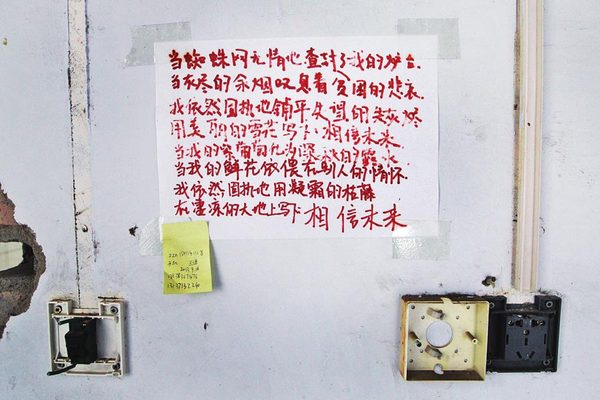 当蜘蛛网无情地查封了我的炉台
当灰烬的余烟叹息着贫困的悲哀
我依然固执地铺平失望的灰烬
用美丽的雪花写下:相信未来
当我的紫葡萄化为深秋的露水
当我的鲜花依偎在别人的情怀
我依然固执地用凝霜的枯藤
在凄凉的大地上写下 相信未来